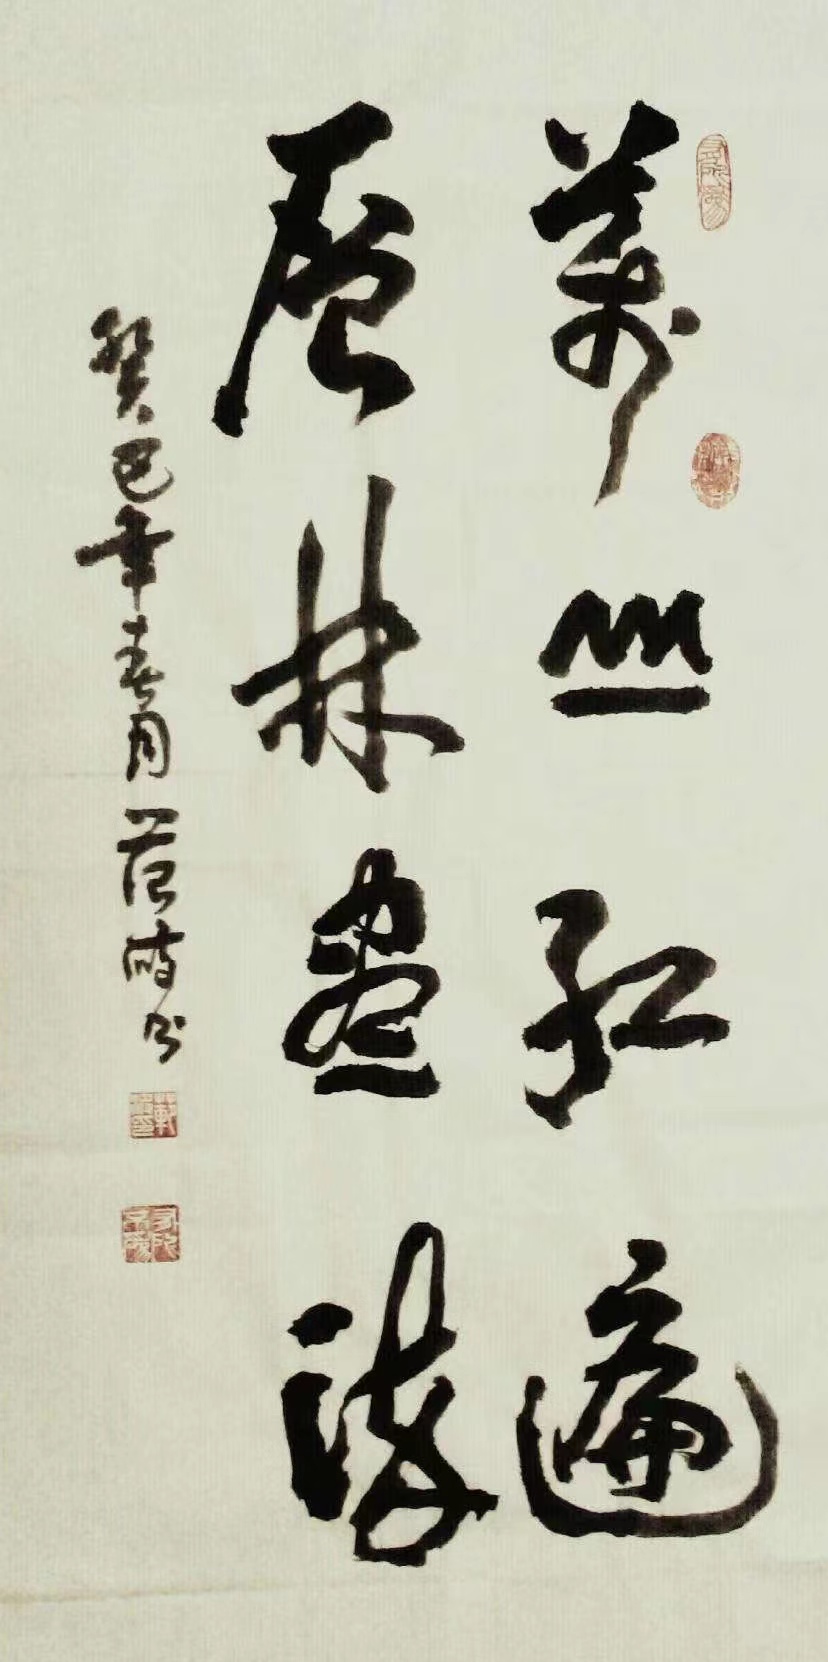 萬山紅遍
層林盡染
癸巳年春月范